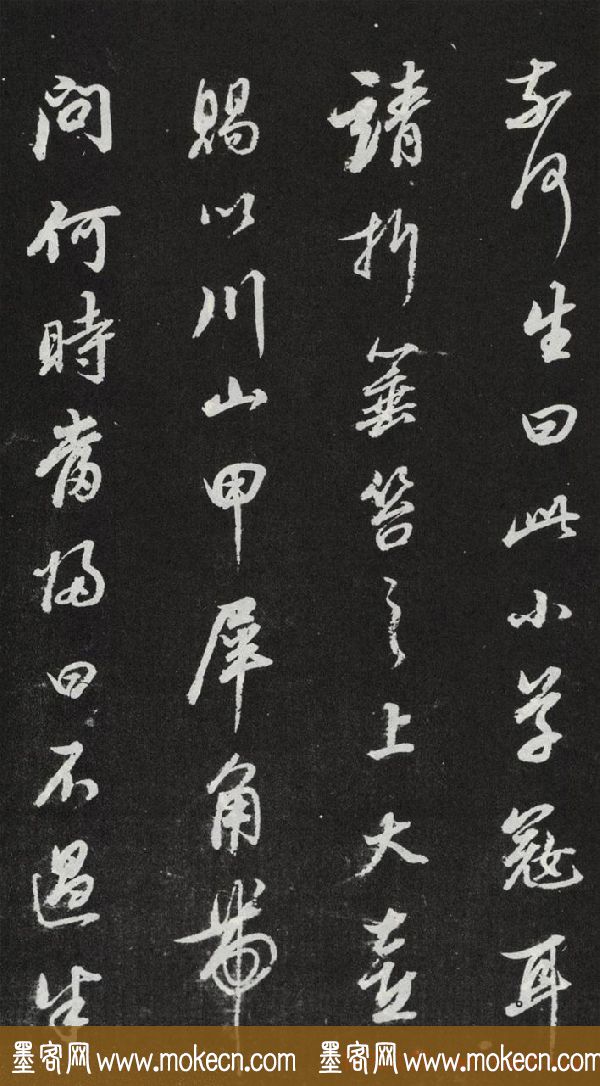 奈何生曰此小草寇耳
請折箠笞之上大喜
賜以川山甲犀角帶
問何時當歸曰不過半
墨客网 www.mokecn.com 墨客网 www.mokecn.com